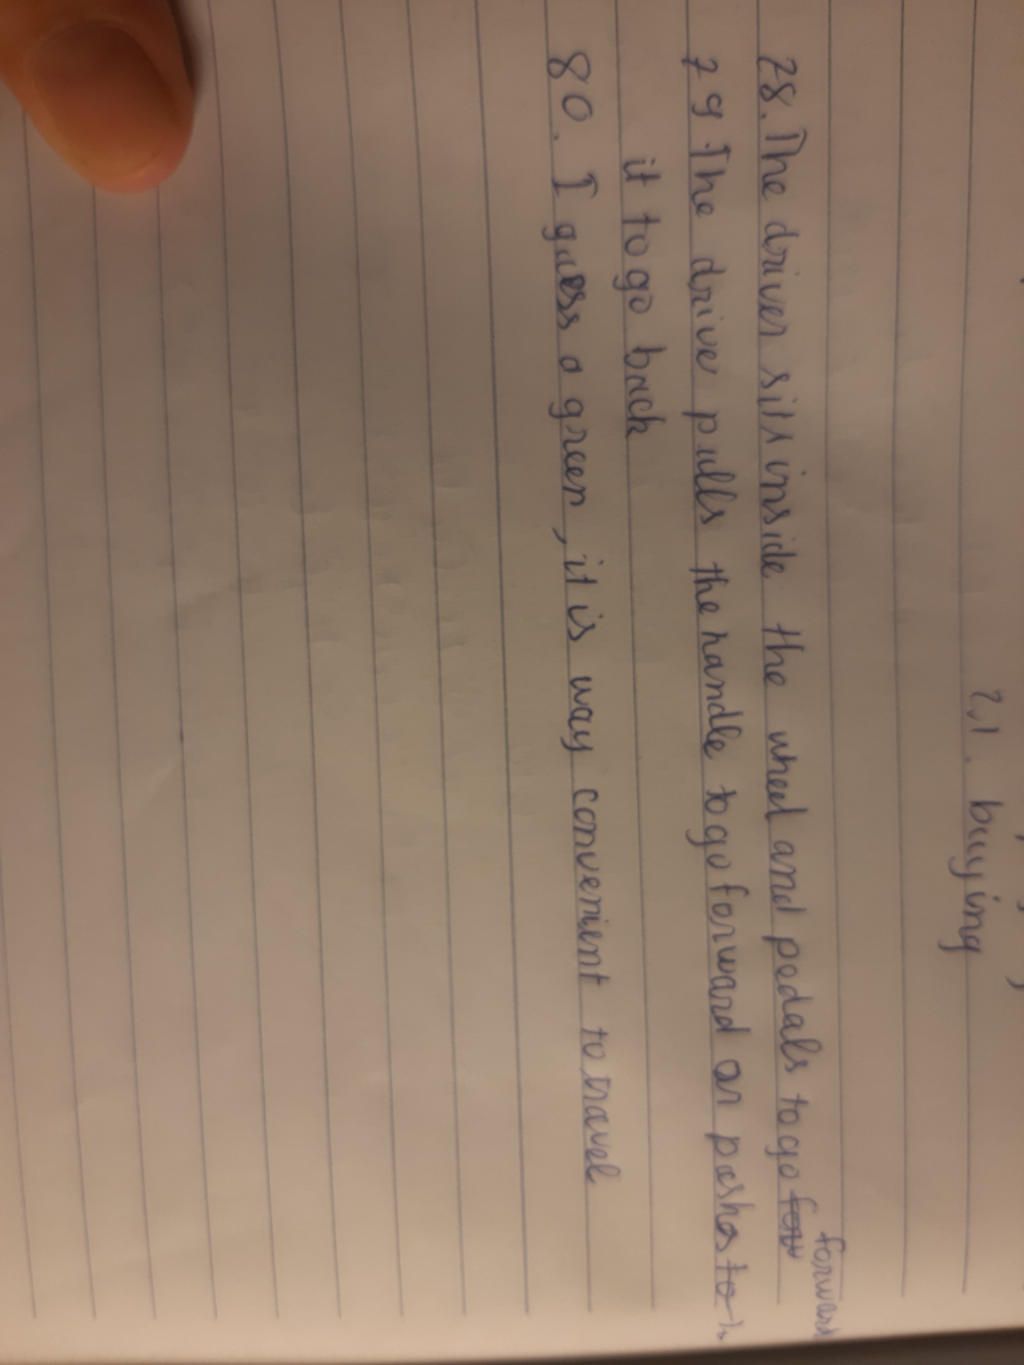 21. buying
28. The driver sits inside the wheel and pedals to go forward
29 The drive pulls the handle to go forward or pushes to
it to go back
80. I guess a green, it is way convenient to travel